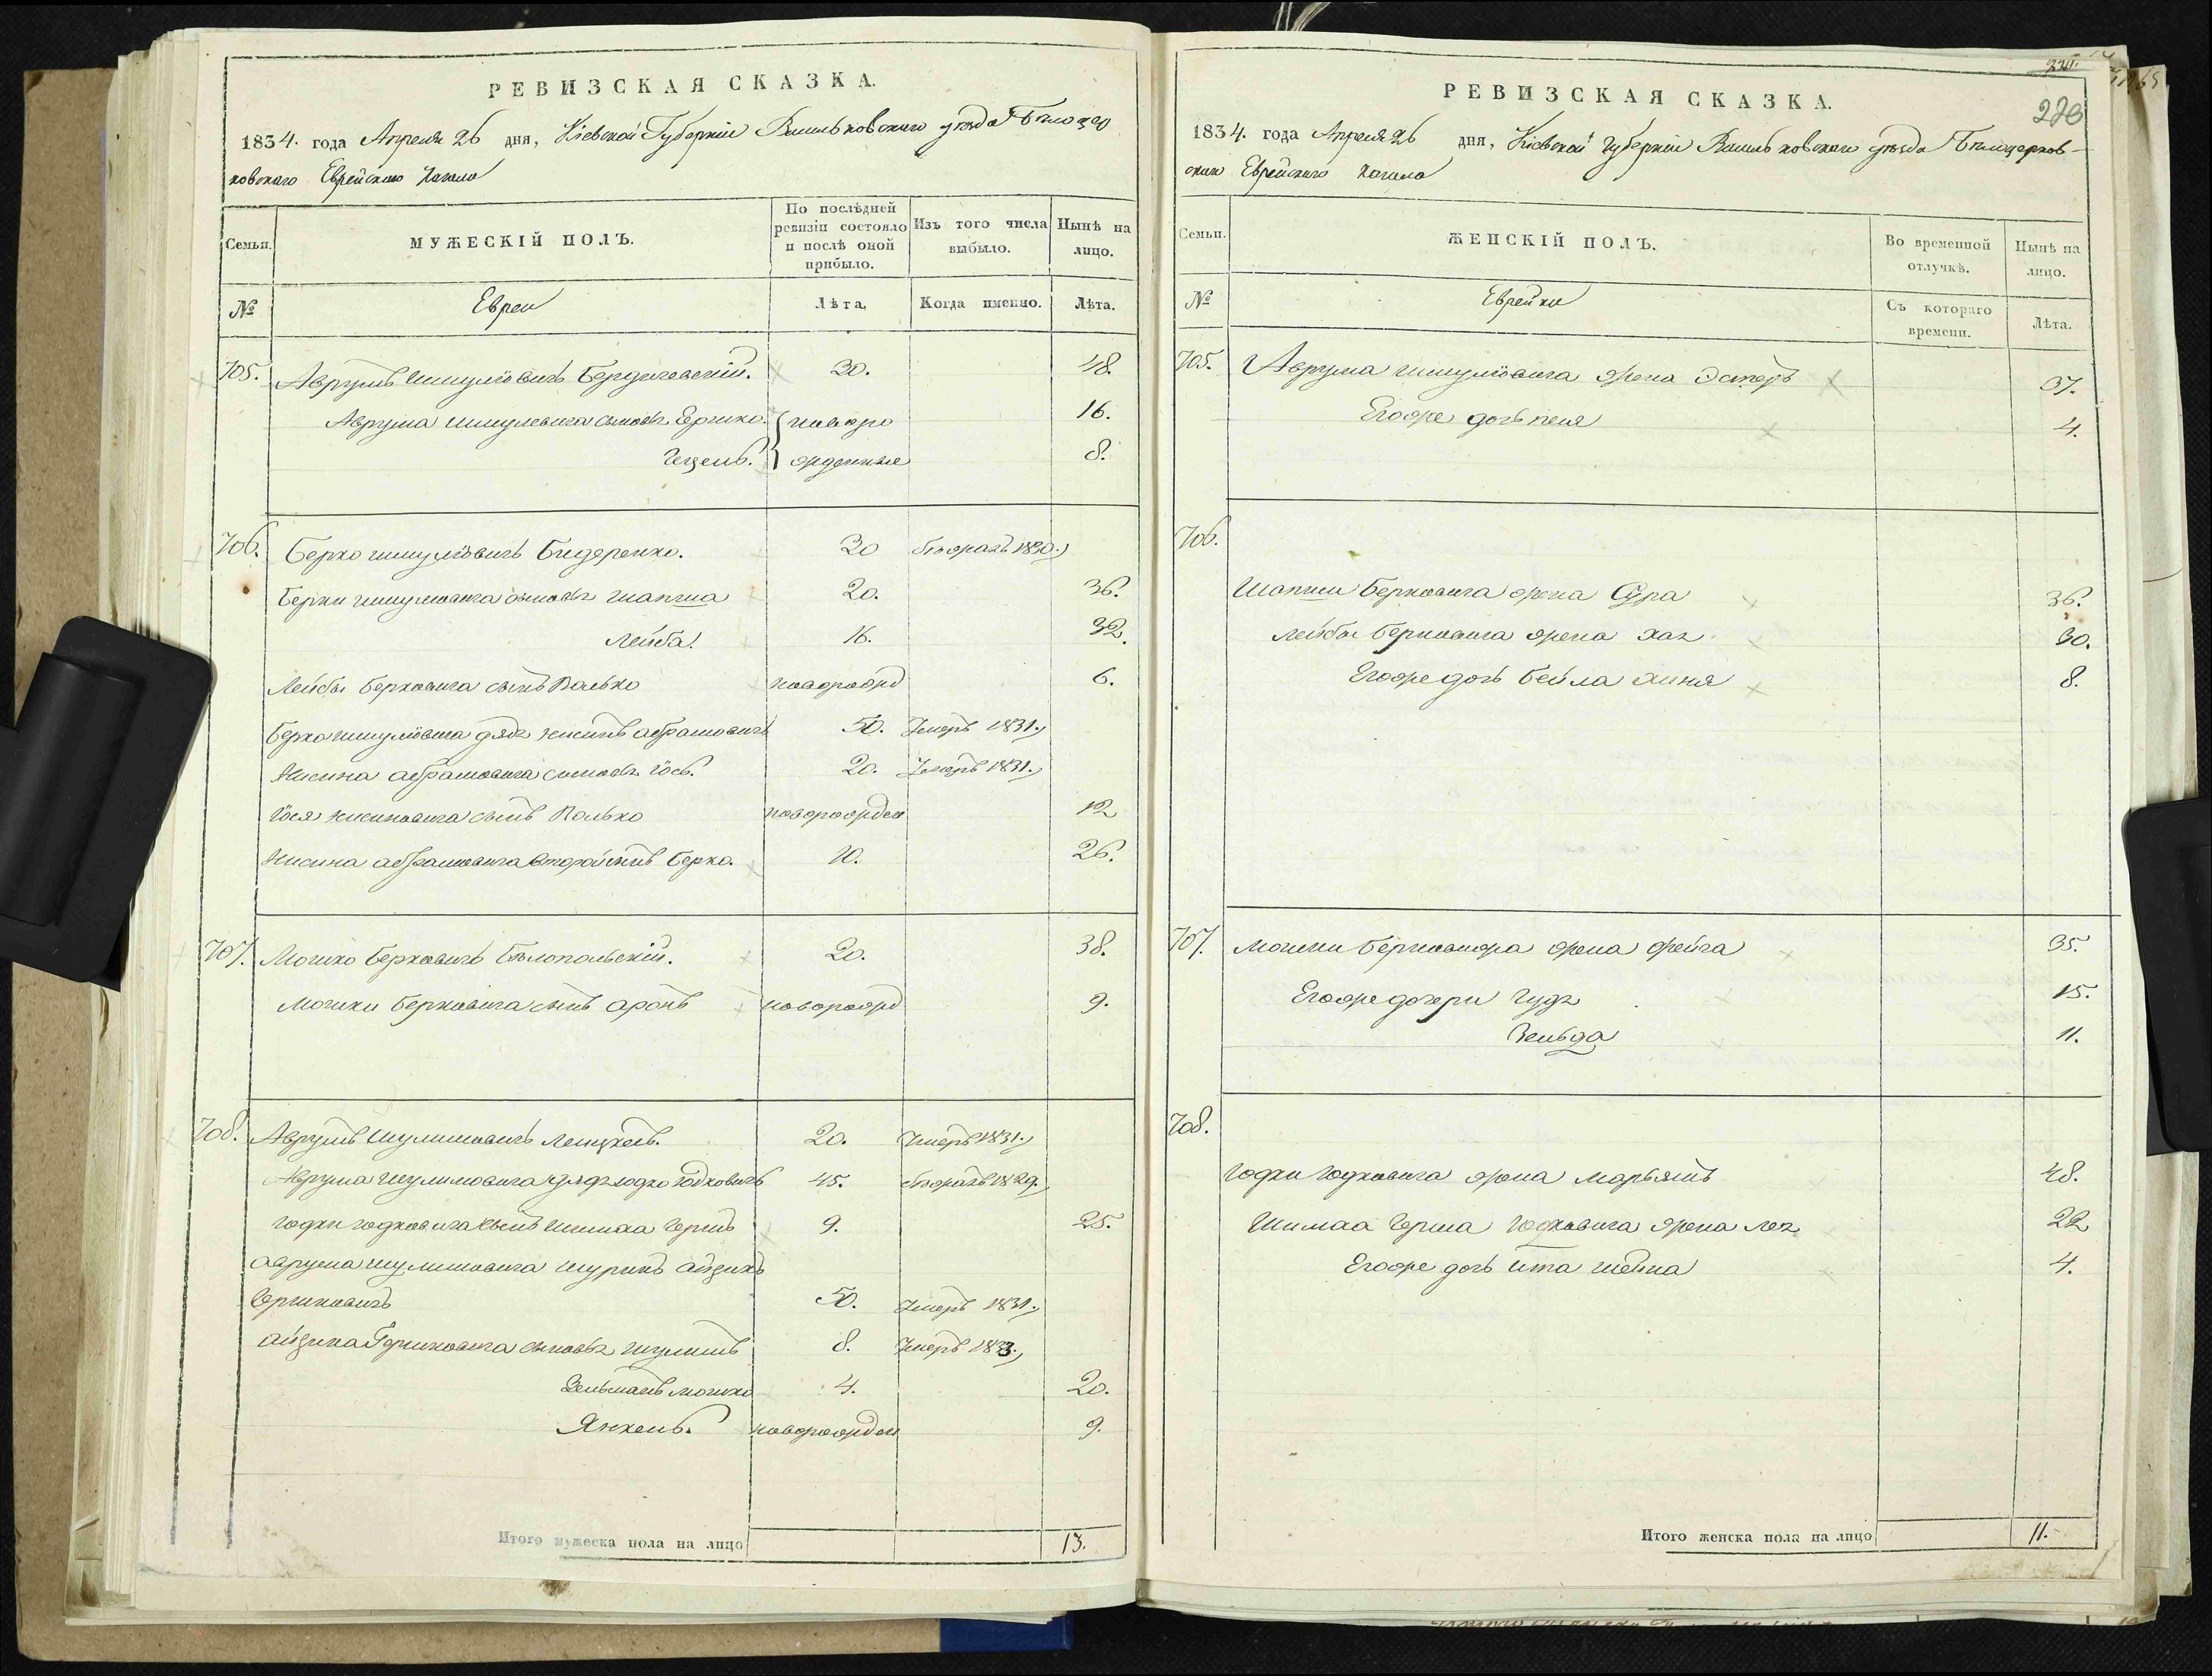 РЕВИЗСКАЯ СКАЗКА.
1834. года Апреля 26 дня, Кіевской Губерніи Васильковского уезда Белоцер
ковского Еврейского Кагала
Семьи.
МУЖЕСКІЙ ПОЛЪ.
По послѣдней ревизіи состояло и послѣ оной прибыло.
Изъ того числа выбыло.
Нынѣ на лицо.
№
Евреи
Лѣта.
Когда именно.
Лѣта.
705. Аврумъ Шмулёвичъ Бердичевскій. 30. 48.
Аврума Шмулевича сыновья Ершко. новоро 16.
Гецель. жденные 8.
706. Берко Шмулёвичъ Бидеренко. 30 1830.
Берки Шмулевича сыновья Шапша 20. 36.
Лейба. 16. 32.
Лейбы Берковича сынъ Волько новорожд 6.
Берка Шмулёвича дядя Нисинъ Абрамовичъ 50. Умеръ 1831.
Нисина Абрамовича сыновья Іось. 20. Умеръ 1831.
Іося Нисиновича сынъ Волько новорожден 12
Нисина Абрамовича второй сынъ Берко. 10. 26.
707. Мошко Берковичъ Белопольскій. 20. 38.
Мошки Берковича сынъ Аронъ новорожд 9.
708. Аврумъ Шулимовичъ 20. Умеръ 1831.
Аврума Шулимовича дядя Юдко Юдковичъ 45. 1829.
Юдки Юдковича сынъ Шимха Гершъ 9. 25.
Аврума Шулимовича шуринъ Айзикъ
Гершковичъ 50. Умеръ 1831.
Айзика Гершковича сыновья Шулимъ 8. Умеръ 1833.
Зельманъ Мошко 4. 20.
Янкель. новорожден 9.
Итого мужеска пола на лицо 13.
230.
РЕВИЗСКАЯ СКАЗКА.
1834. года Апреля 26 дня, Кіевской Губерніи Васильковского уезда Белоцерков-
ского Еврейского Кагала
Семьи.
ЖЕНСКІЙ ПОЛЪ.
Во временной отлучкѣ.
Нынѣ на лицо.
№
Еврейки
Съ котораго времени.
Лѣта.
705. Аврума Шмулёвича жена Эстеръ 37.
Егоже дочь Песя 4.
706.
Шапши Берковича жена Сура 36.
Лейбы Берковича жена Хая 30.
Егоже дочь Бейла Хиня 8.
707. Мошки Берковича жена Фейга 35.
Егоже дочери Гудя 15.
Зельда 11.
708.
Юдки Юдковича жена Марьямъ 48.
Шимха Герша Юдковича жена Лея 22
Егоже дочь Ита Шейна 4.
Итого женска пола на лицо 11.